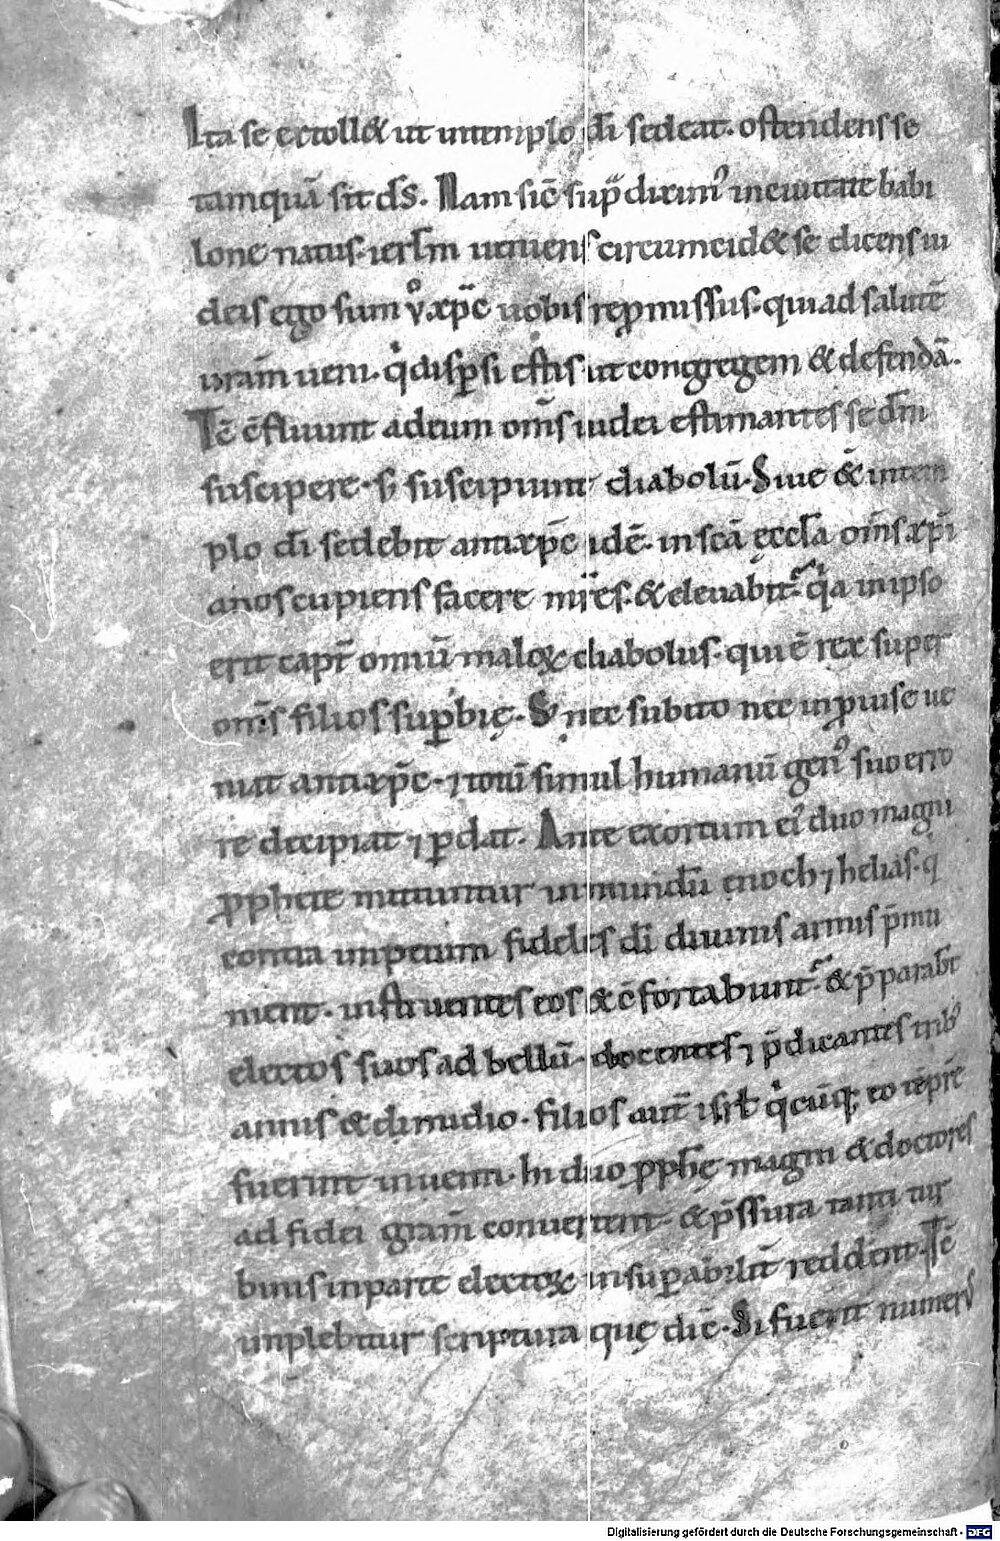 Ita se extoll& ut intemplo dī sedeat. ostendens se
tamquā sit d̄s. Nam sic̄ sup̄ diximꝰ inciuitate babi
lone natus. ierl̄m ueniens circumcid& se dicens iu
deis ego sum xp̄c uobis repmissus. qui ad salutē
ur̄am ueni. q̇ dispersi estis ut congregem & defendā.
Tc̄ c̄fluunt adeum om̄s iudei estimantes se dm̄
suscipere. s; suscipiunt diabolū. Siue & intem
plo dī sedebit antixp̄c idē. in sc̄a ęccl̄a om̄s xp̄i
anos cupiens facere mr̄es. & eleuabit᷑. q̇a in ipso
erit capt̄ omniū maloꝝ diabolus. qui ē rex super
om̄s filios suꝑbię. S; nec subito nec inꝓuise ue
niat antixp̄c. ⁊ totū simul humanū genꝰ suo erro
re decipiat ⁊ ꝑdat. Ante exortum eiꝰ duo magni
ꝓphete mittuntur inmundū enoch ⁊ helias. q̇
contra impetum fideles dī diuinis armis p̄mu
nient. instruentes eos & c̄fortabunt᷑. & p̄parab̄t
electos suos ad bellū. docentes ⁊ p̄dicantes tribꝰ
annis & dimidio. filios aut̄ isrl̄ q̇cūq; eo tēpr̄e
fuerint inuenti. hi duo ꝓph̄ę magni & doctores
ad fidei gr̄am conuertent. & p̄ssura tanti tur
binis inparte electoꝝ insuꝑabilē reddent. Tc̄
implebitur scriptura quę dic̄. Si fuerit numerꝰ
Digitalisierung gefördert durch die Deutsche Forschungsgemeinschaft - DFG